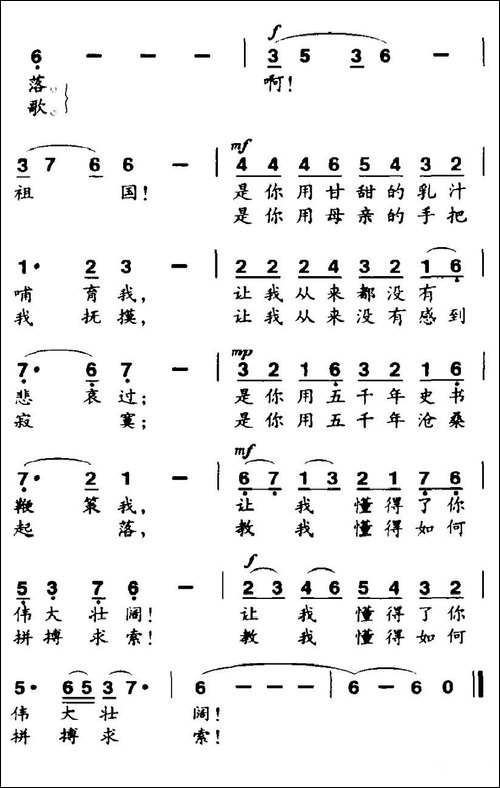 f
6 - - - | 3 5 3 6 - |
落 啊!
歌
mf
3 7 6 6 - | 4 4 4 6 5 4 3 2
祖 国! 是你用甘甜的乳汁
是你用母亲的手把
1· 2 3 - | 2 2 2 4 3 2 1 6
哺 育我, 让我从来都没有
我 抚摸, 让我从来没有感到
mp
7· 6 7 - | 3 2 1 6 3 2 1 6
悲 哀过; 是你用五千年史书
寂 寞; 是你用五千年沧桑
mf
7· 2 1 - | 6 7 1 3 2 1 7 6
鞭 策我, 让 我 懂得了你
起 落, 教 我 懂得如何
f
5 3 7 6 - | 2 3 4 6 5 4 3 2
伟大壮阔! 让 我 懂得了你
拼搏求索! 教 我 懂得如何
5· 6 5 3 7· | 6 - - - | 6 - 6 0 ‖
伟 大 壮 阔!
拼 搏 求 索!